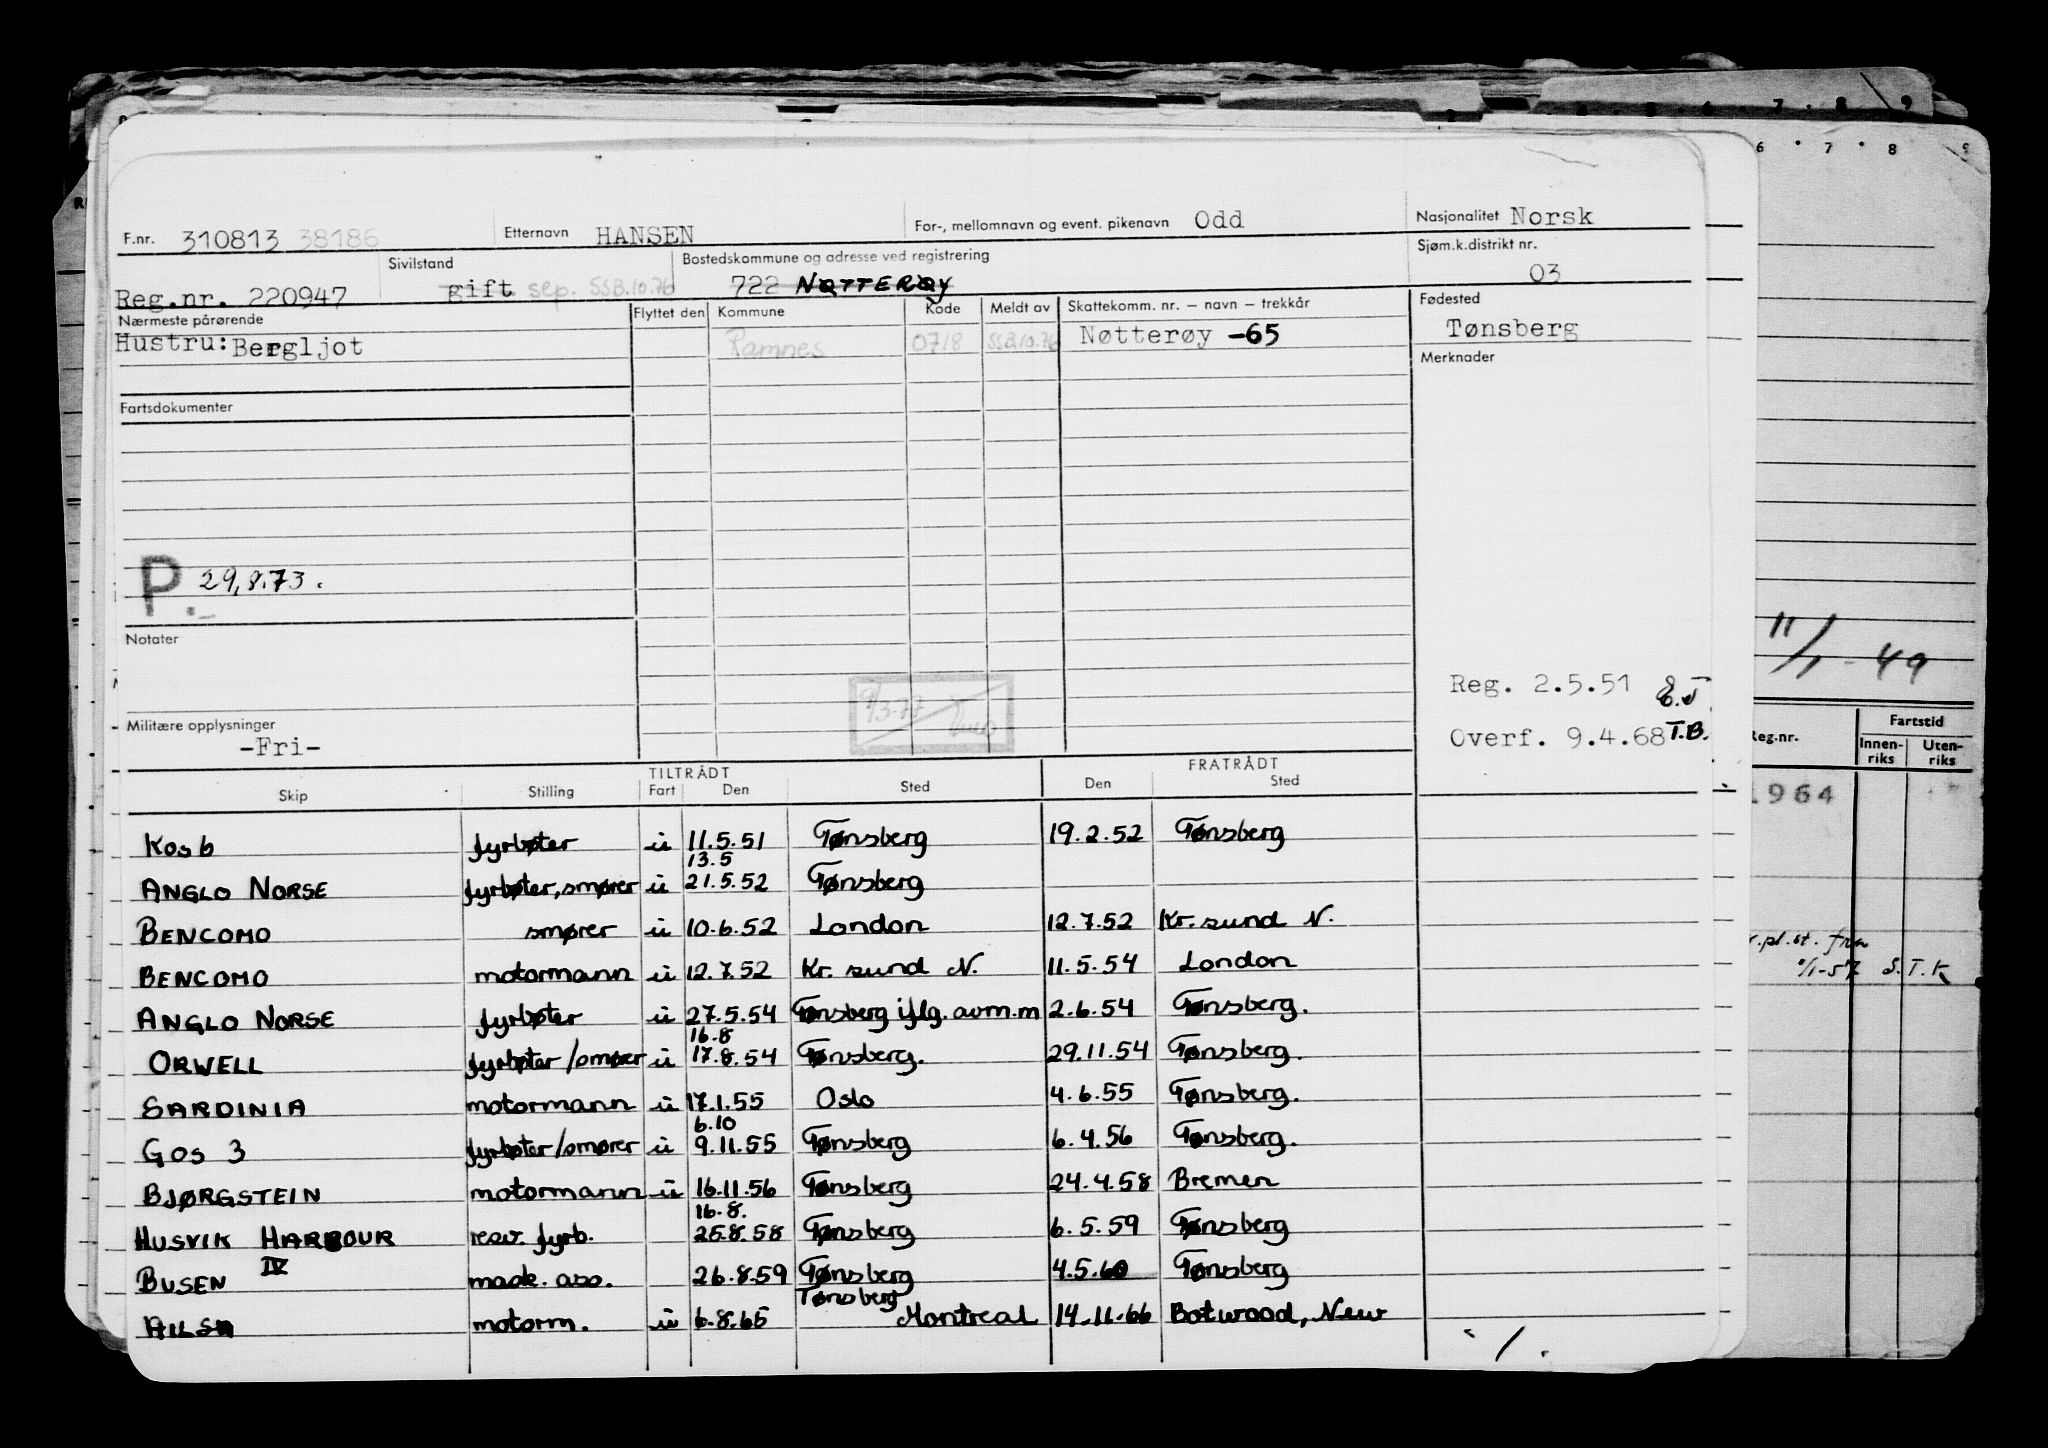 F.nr. 310813 38186 Etternavn HANSEN For-, mellomnavn og event. pikenavn Odd Nasjonalitet Norsk
Sivilstand Bostedskommune og adresse ved registrering Sjøm.k.distrikt nr.
Reg.nr. 220947 gift sep. SSB.10.76 722 NØTTERØY 03
Nærmeste pårørende Flyttet den Kommune Kode Meldt av Skattekomm. nr. – navn – trekkår Fødested
Hustru: Bergljot Ramnes 0718 SSB.10.76 Nøtterøy -65 Tønsberg
Merknader
Fartsdokumenter
P. 29.8.73.
Notater
Reg. 2.5.51
Militære opplysninger
-Fri- Overf. 9.4.68 T.B.
TILTRÅDT FRATRÅDT
Skip Stilling Fart Den Sted Den Sted
Kos 6 fyrbøter ü 11.5.51 Tønsberg 19.2.52 Tønsberg
13.5
ANGLO NORSE fyrbøter, smører ü 21.5.52 Tønsberg
BENCOMO smører ü 10.6.52 London 12.7.52 Kr. sund N.
BENCOMO motormann ü 12.7.52 Kr. sund N. 11.5.54 London
ANGLO NORSE fyrbøter ü 27.5.54 Tønsberg iflg. avm.m 2.6.54 Tønsberg.
16.8
ORWELL fyrbøter/smører ü 17.8.54 Tønsberg. 29.11.54 Tønsberg.
SARDINIA motormann ü 17.1.55 Oslo 4.6.55 Tønsberg.
6.10
GOS 3 fyrbøter/smører ü 9.11.55 Tønsberg 6.4.56 Tønsberg.
BJØRGSTEIN motormann ü 16.11.56 Tønsberg 24.4.58 Bremen
16.8.
HUSVIK HARBOUR resv. fyrb. 25.8.58 Tønsberg 6.5.59 Tønsberg
BUSEN IV mask. ass. 26.8.59 Tønsberg 4.5.60 Tønsberg
Tønsberg
AILSA motorm. ü 6.8.65 Montreal 14.11.66 Botwood, New
./.
6 7 8 9
6 7 8 9
11/1-49
Reg.nr. Fartstid
Innen-riks Uten-riks
1964
r.pl.st. fra
1/1-57 S.T.K